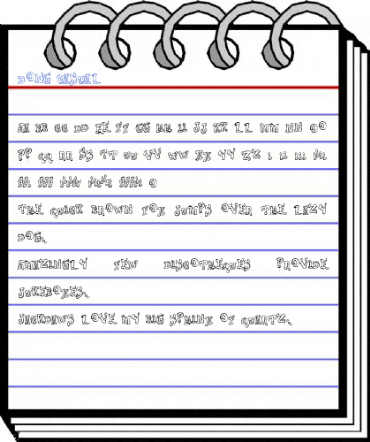 DONG CASUAL
AA BB CC DD EE FF GG HH II JJ KK LL MM NN OO
PP QQ RR SS TT UU VV WW XX YY ZZ I II III
THE QUICK BROWN FOX JUMPS OVER THE LAZY
DOG.
AMAZINGLY FEW DISCOTHEQUES PROVIDE
JUKEBOXES.
JACKDAWS LOVE MY BIG SPHINX OF QUARTZ.